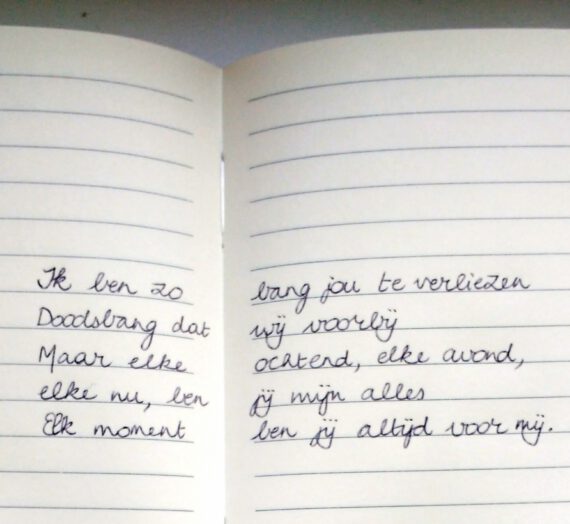 Ik ben zo bang jou te verliezen
Doodsbang dat wij voorbij
Maar elke ochtend, elke avond,
elke nu, ben jij mijn alles
Elk moment ben jij altijd voor mij.